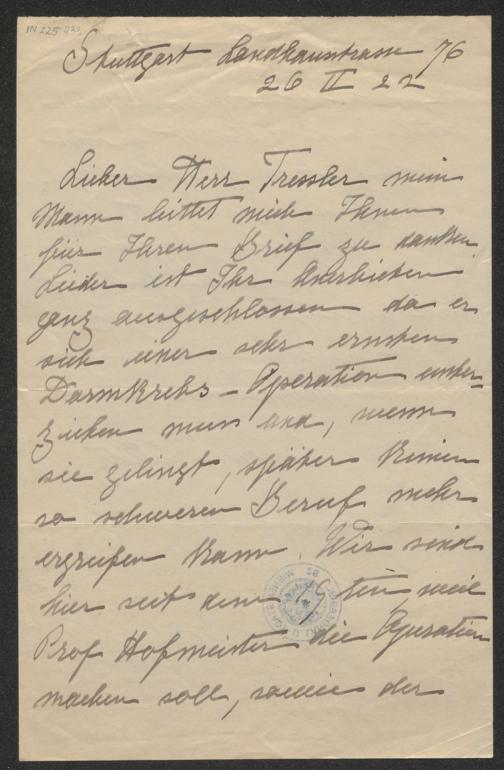 IN 225
Stuttgart Landhausstrasse 76
26 II 22
Lieber Herr Tressler mein
Mann bittet mich Ihnen
für Ihren Brief zu danken.
Leider ist Ihr Anerbieten
ganz ausgeschlossen da er
sich einer sehr ernsten
Darmkrebs-Operation unter-
ziehen muss und, wenn
sie gelingt, später keinen
so schweren Beruf mehr
ergreifen kann. Wir sind
hier seit dem ten weil
Prof Hofmeister die Operation
machen soll, sowie der